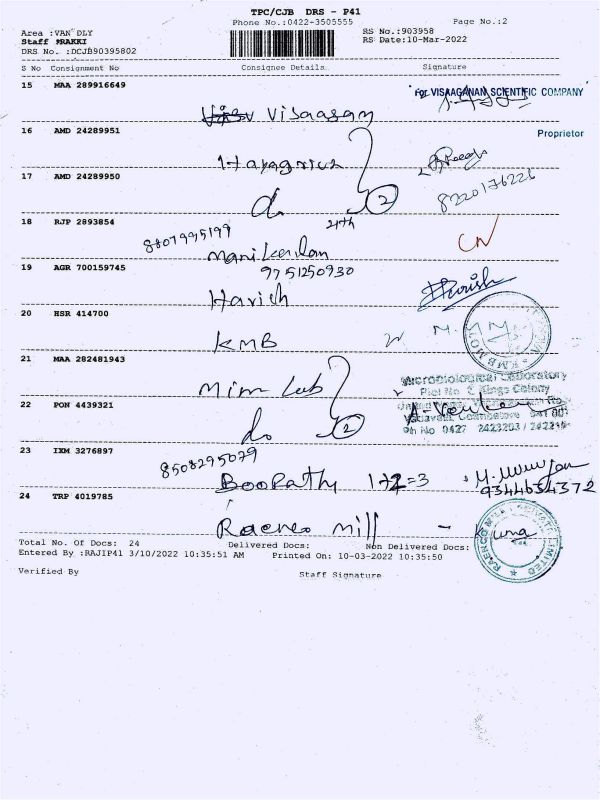 TPC/CJB DRS - P41
Phone No.:0422-3505555
Page No.:2
Area :VAN DLY
Staff :RAKKI
DRS No. :DCJB90395802
RS No.:903958
RS Date:10-Mar-2022
S No Consignment No Consignee Details Signature
15 MAA 289916649
For VISAAGANAN SCIENTIFIC COMPANY
Visaagan
16 AMD 24289951
Proprietor
Hayagrives
17 AMD 24289950
8220176226
do 2
18 RJP 2893854
8807995199
Manikandan
CN
19 AGR 700159745
9751250930
Harish
Harish
20 HSR 414700
KMB
21 MAA 282481943
Mim Lab
Microbiological Laboratory
Plot No
Kings Colony
22 PON 4439321
Coimbatore
Ph No 0427 2423203 /
do 2
23 IXM 3276897
8508295029
Boopathy 1+2=3
9344654372
24 TRP 4019785
Raeneo mill -
Total No. Of Docs: 24 Delivered Docs: Non Delivered Docs:
Entered By :RAJIP41 3/10/2022 10:35:51 AM Printed On: 10-03-2022 10:35:50
Verified By Staff Signature